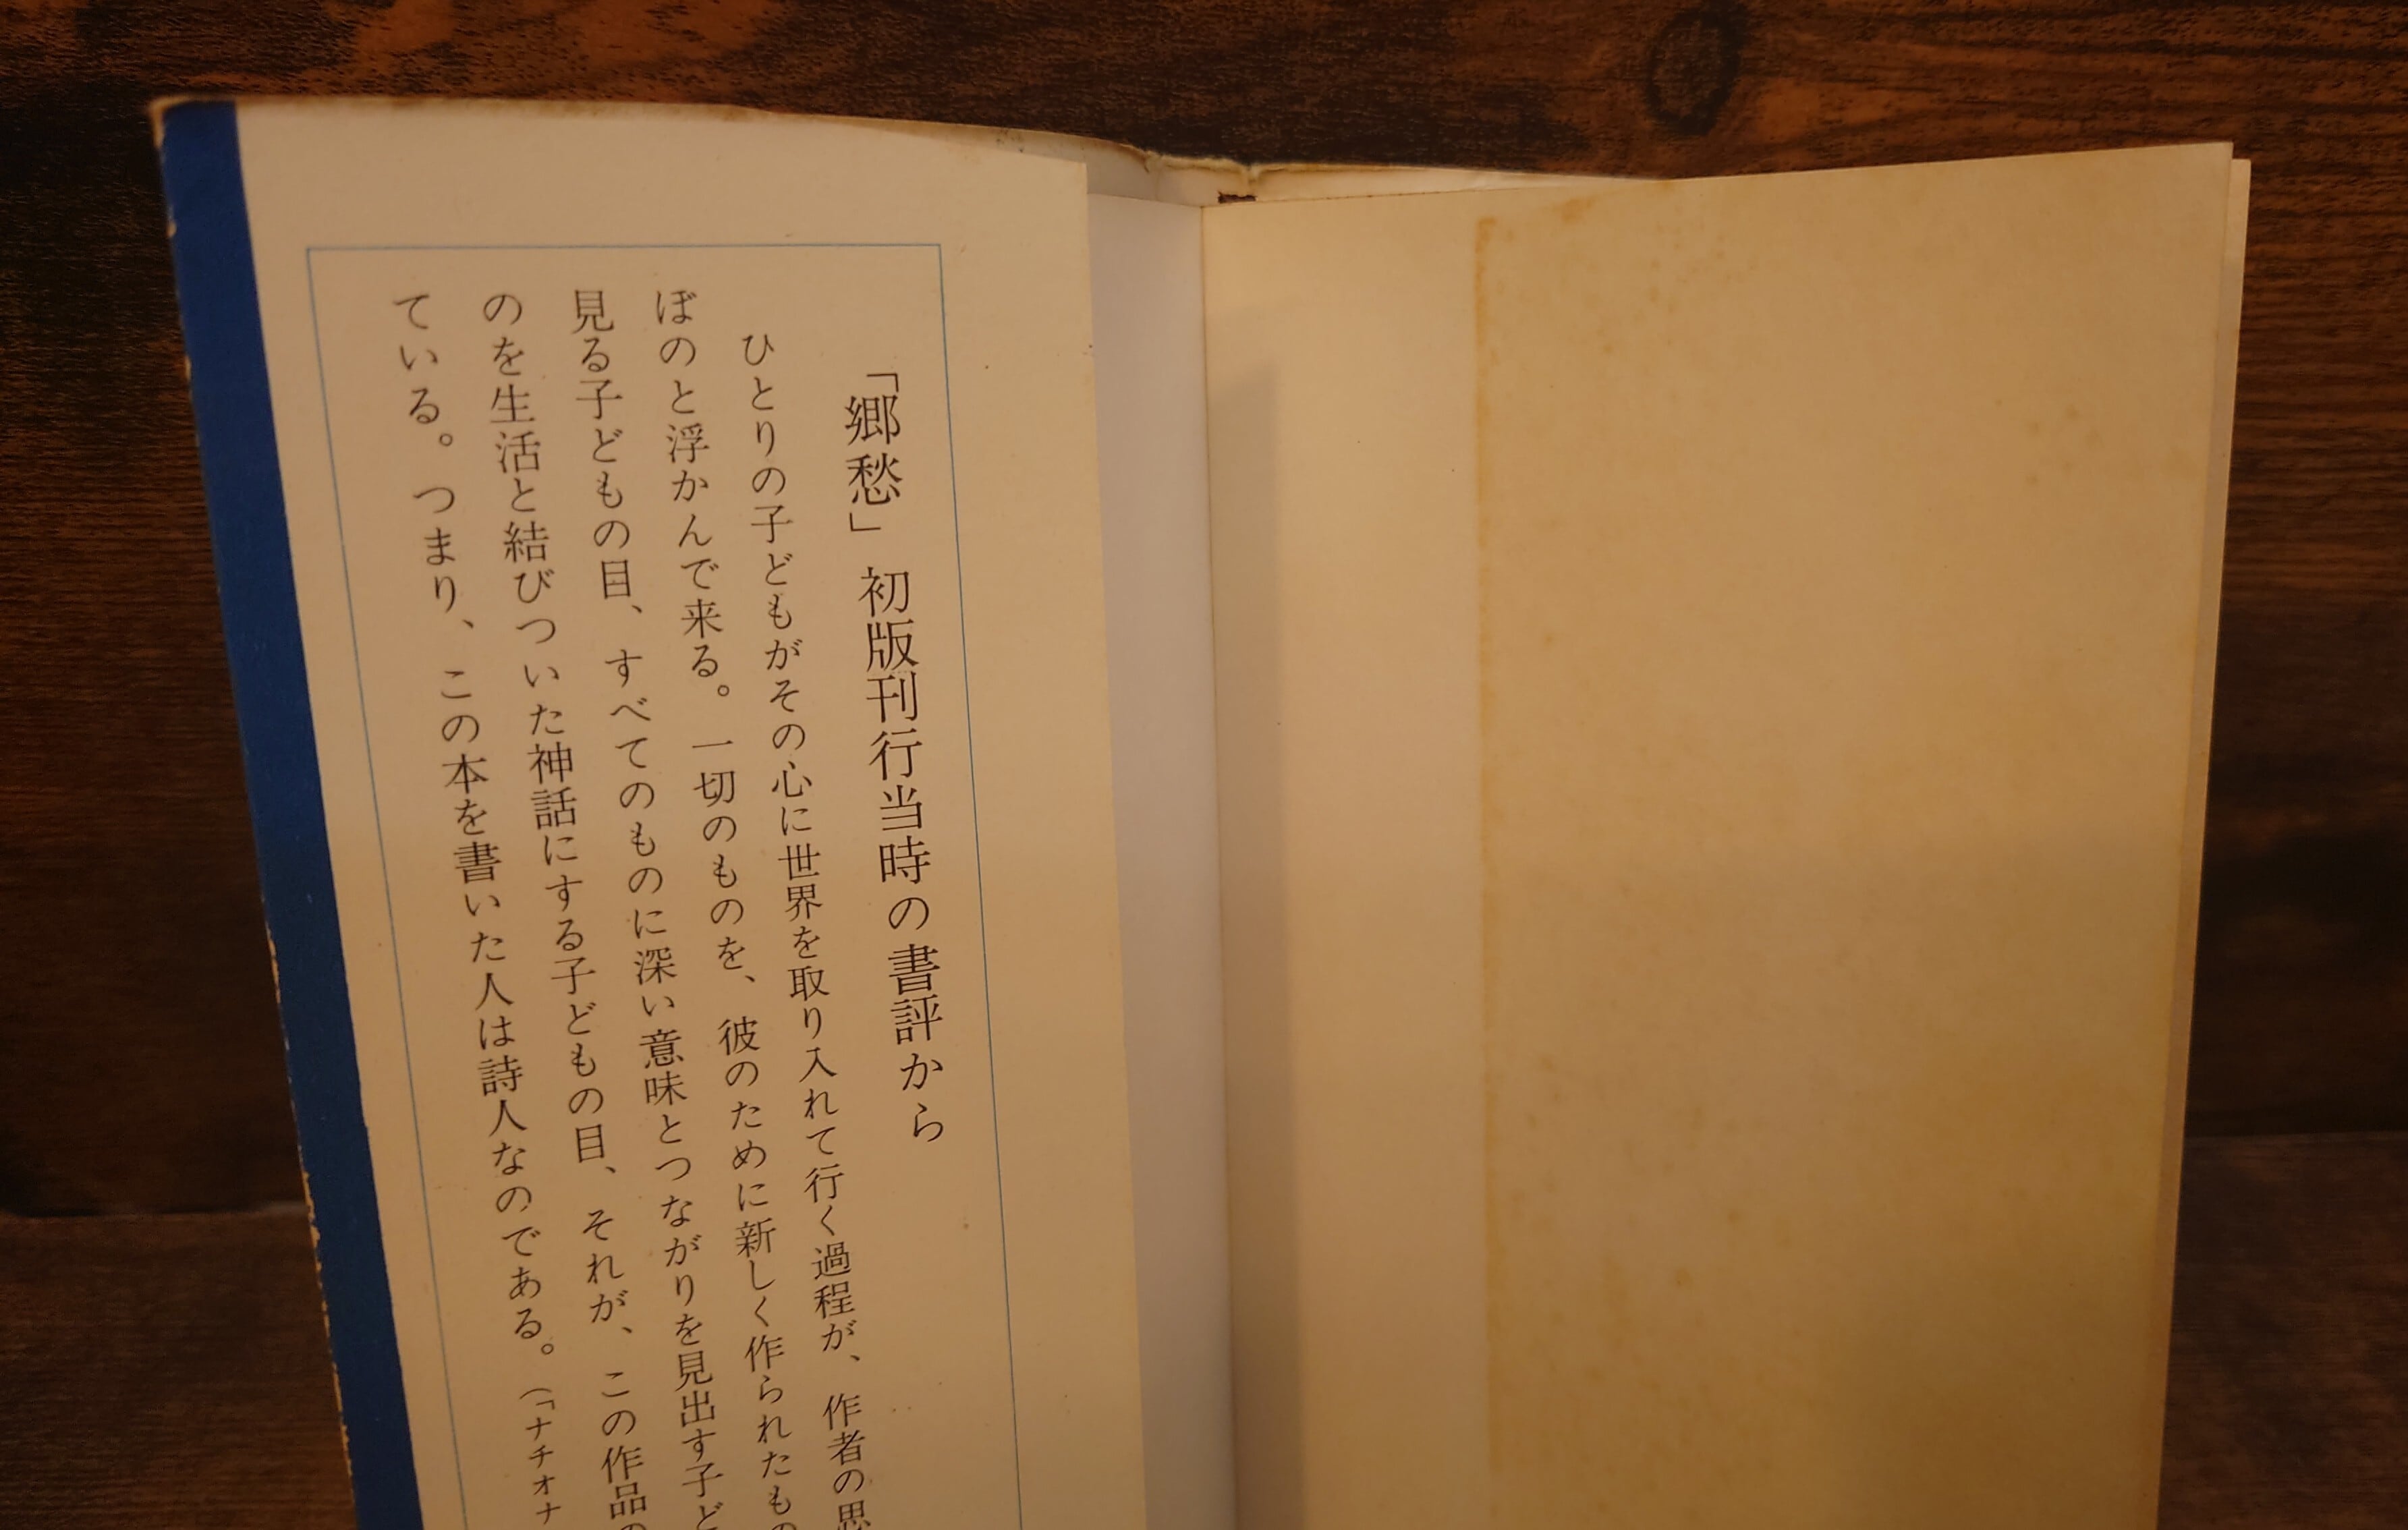 「郷愁」初版刊行当時の書評から
ひとりの子どもがその心に世界を取り入れて行く過程が、作者の思
ぼのと浮かんで来る。一切のものを、彼のために新しく作られたもの
見る子どもの目、すべてのものに深い意味とつながりを見出す子ど
のを生活と結びついた神話にする子どもの目、それが、この作品の
ている。つまり、この本を書いた人は詩人なのである。（「ナチオナ